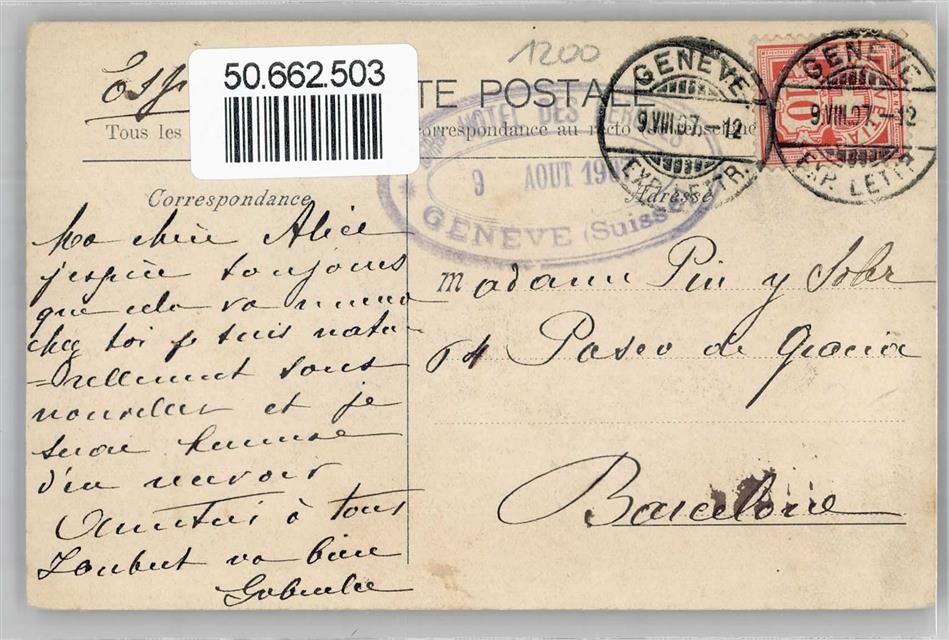 1200
50.662.503
TE POSTALE
Tous les
correspondance au recto
Correspondance
Adresse
HOTEL DES
9 AOUT 190
GENÈVE (Suisse)
GENÈVE
9.VIII.07.-12
EXP. LETTR.
GENÈVE
9.VIII.07.-12
EXP. LETTR.
10
Ma chère Alice
j'espère toujours
que cela va mieux
chez toi je suis natu-
=rellement sans
nouvelles et je
serai heureuse
d'en recevoir
Amitiés à tous
va bien
Madame Pin y Soler
64 Paseo de Gracia
Barcelone